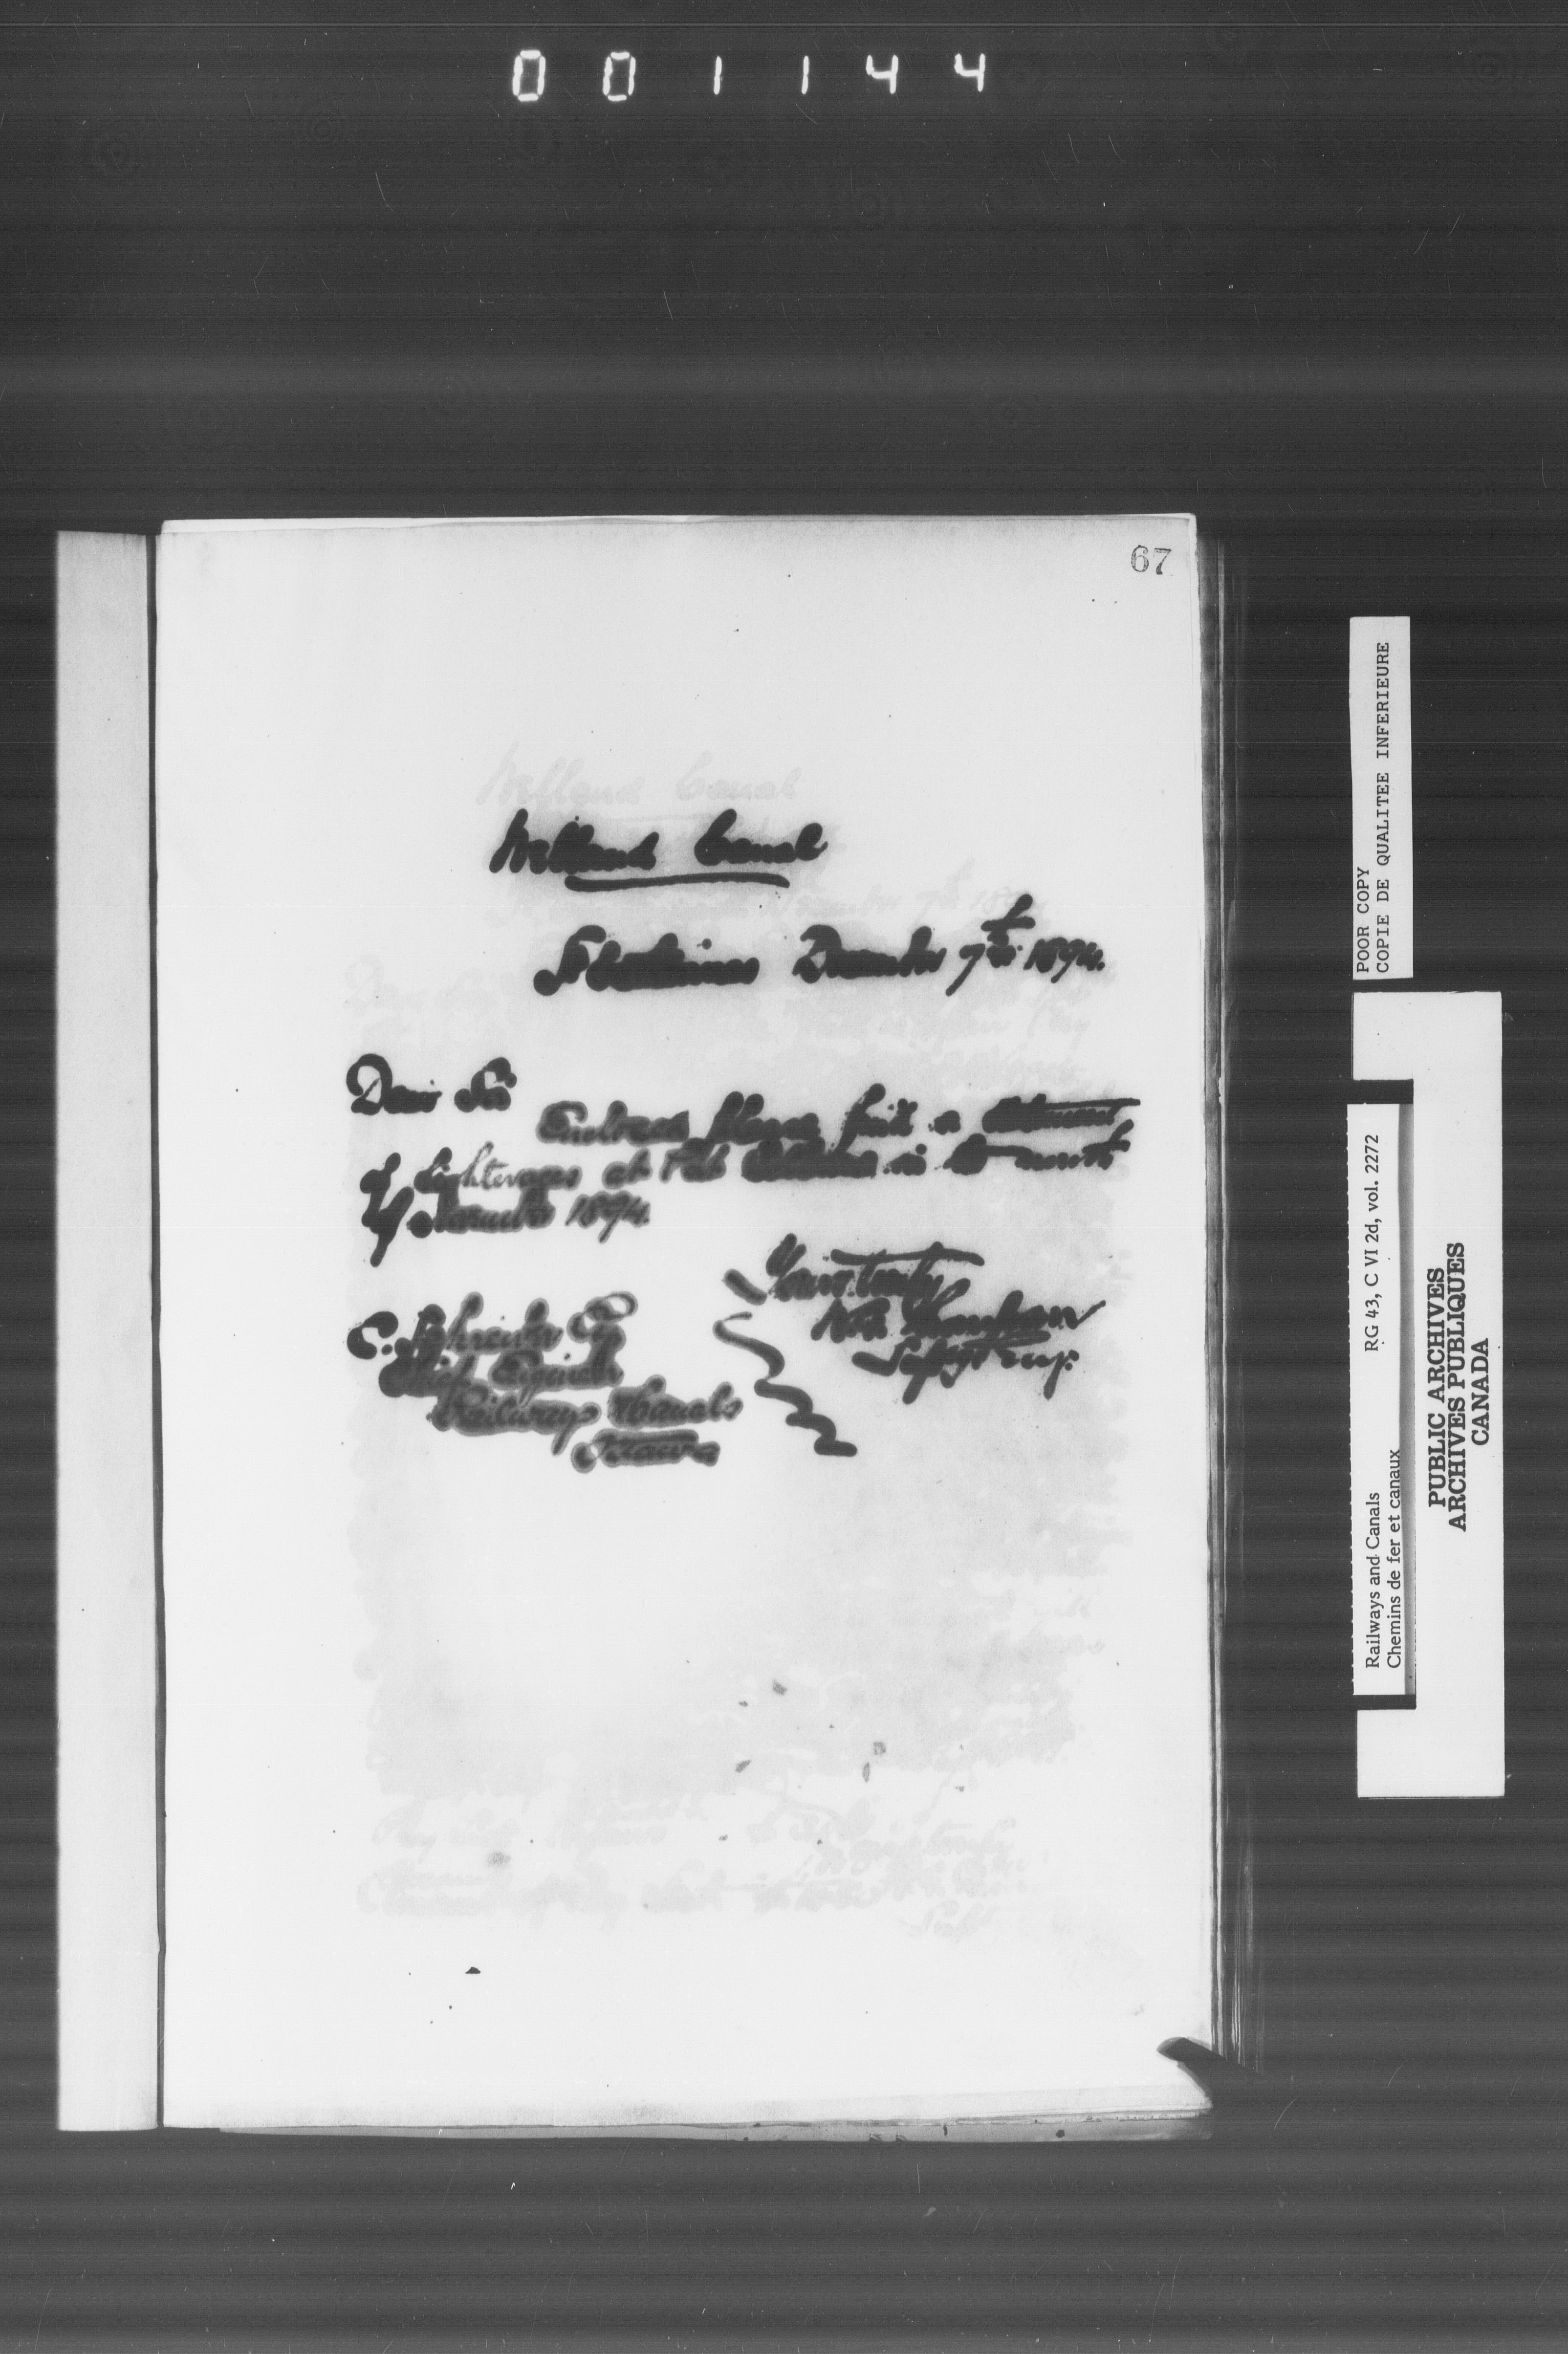 001144
67
Welland Canal
St Catharines December 7th 1894.
Dear Sir
Enclosed please find a statement
of lighterages at Port Colborne in the month
of November 1894.
Yours truly
Wm Thompson
Supgt Eng.
C. Schreiber Esq
Chief Engineer
Railways & Canals
Ottawa
POOR COPY
COPIE DE QUALITEE INFERIEURE
Railways and Canals RG 43, C VI 2d, vol. 2272
Chemins de fer et canaux
PUBLIC ARCHIVES
ARCHIVES PUBLIQUES
CANADA